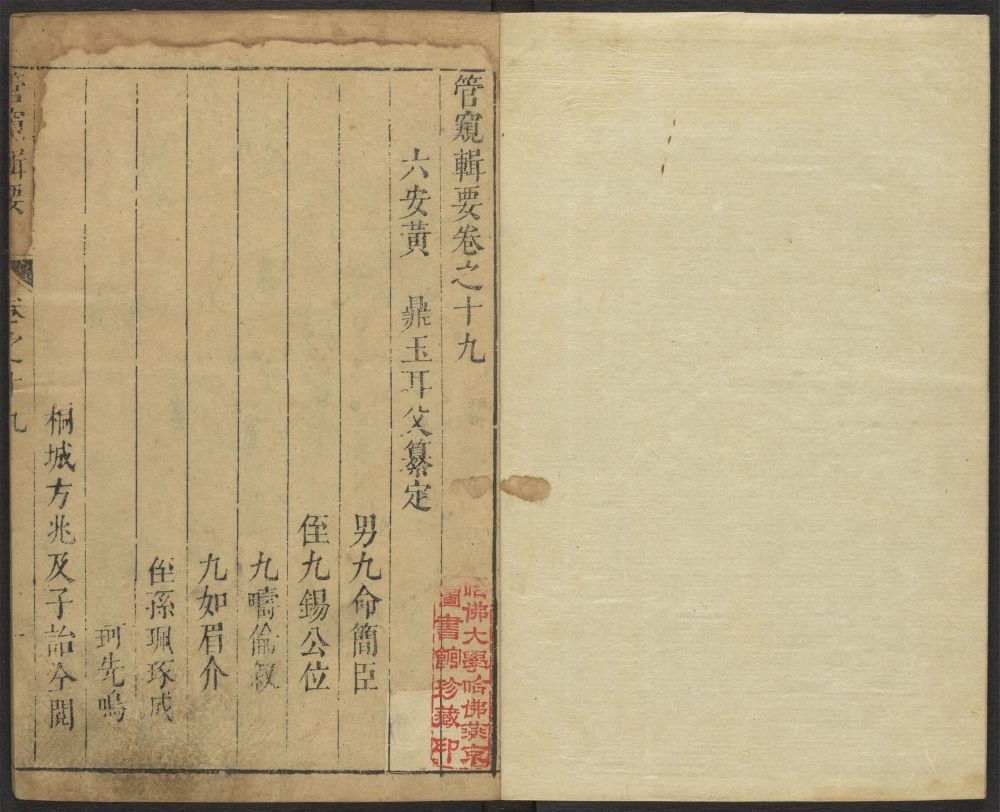 管窺輯要卷之十九
六安黃　鼎玉耳父纂定
男九命簡臣
侄九錫公位
九疇倫叙
九如眉介
侄孫珮琢成
珂先鳴
桐城方兆及子詒仝閱
管窺輯要　卷之十九　一
哈佛大學哈佛燕京
圖書館珍藏印